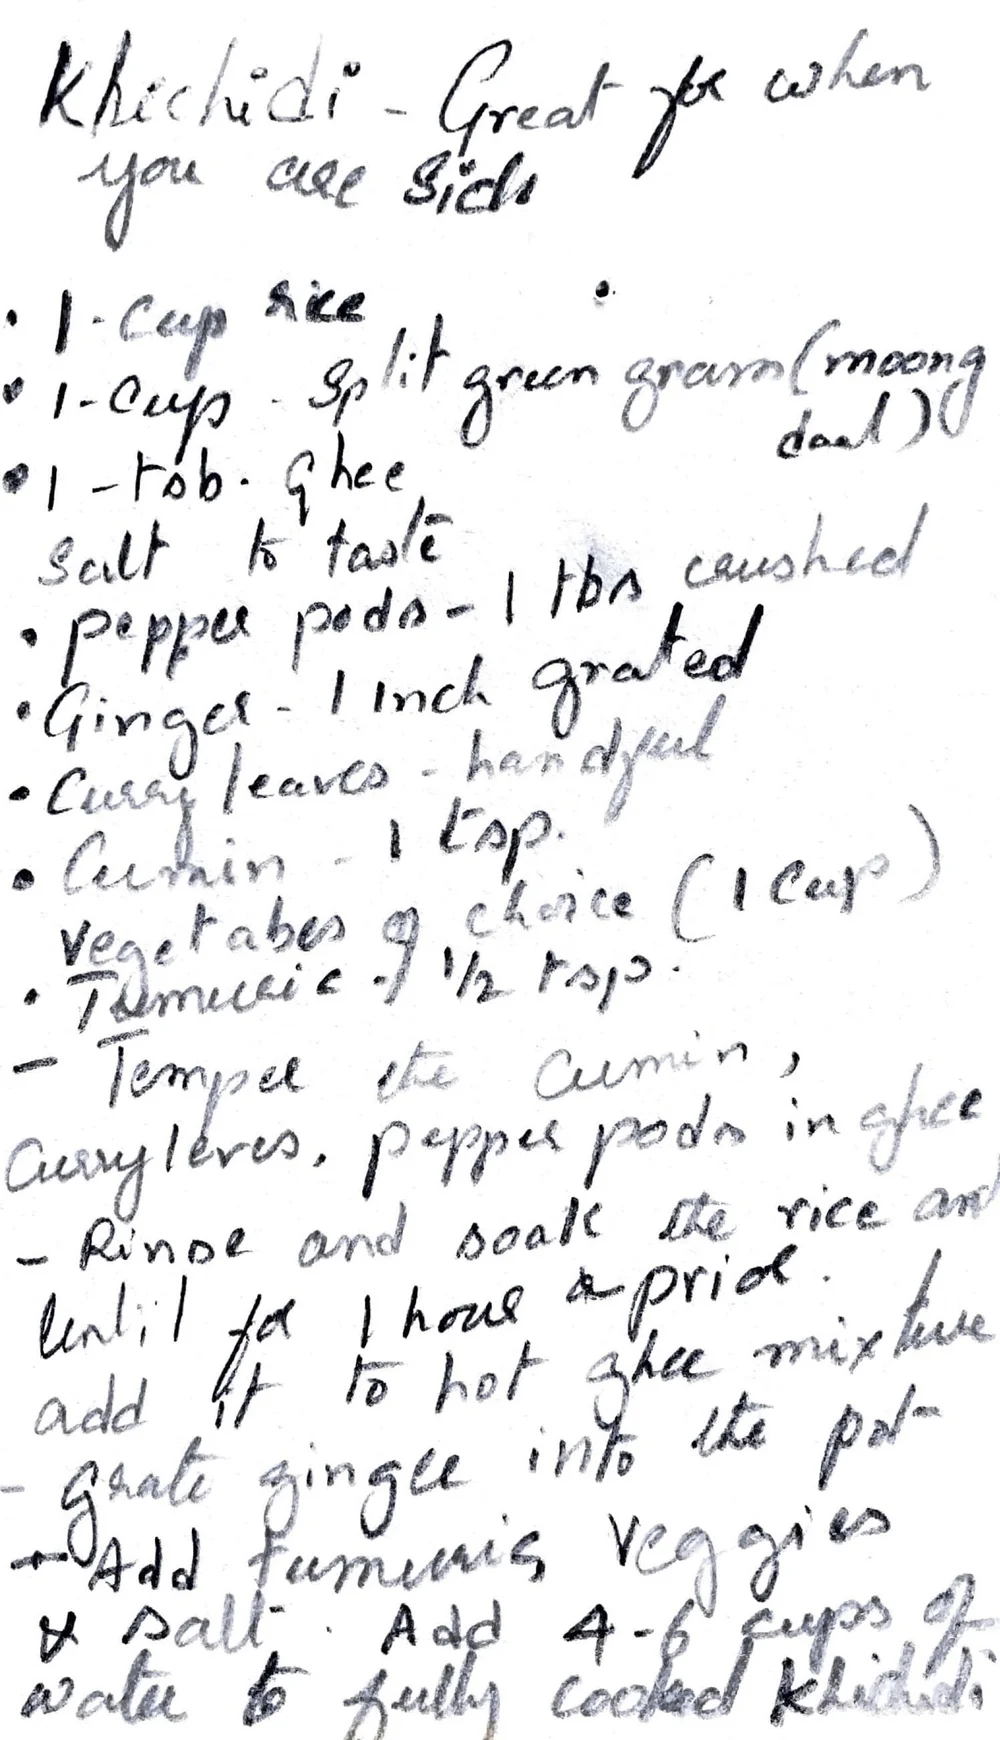 Khichidi - Great for when
you are sick
• 1 - Cup rice
• 1 - Cup - Split green gram (moong
daal)
• 1 - tsb. Ghee
Salt to taste
• Pepper pods - 1 tbs crushed
• Ginger - 1 Inch grated
• Curry leaves - handful
• Cumin - 1 tsp.
Vegetabes of choice (1 Cup)
• Tumeric - 1/2 tsp.
- Temper the Cumin,
Curry leves, pepper pods in ghee
- Rinse and soak the rice and
lentil for 1 hour a prior.
add it to hot ghee mixture
- Grate ginger into the pot
- Add tumeric, Veggies
& salt. Add 4-6 cups of
water to fully cooked khichidi